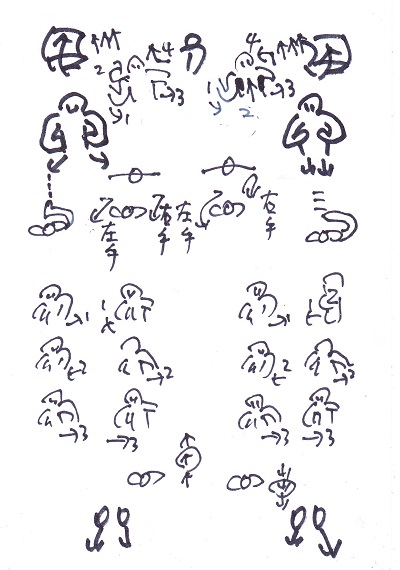 4 4
2 3 1 3
1 2
左手 右手 左手 右手
1 1 1
2 2 2
3 3 3 3